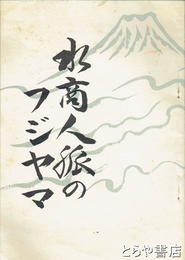 水商人脈の
フジヤマ
とらや書店